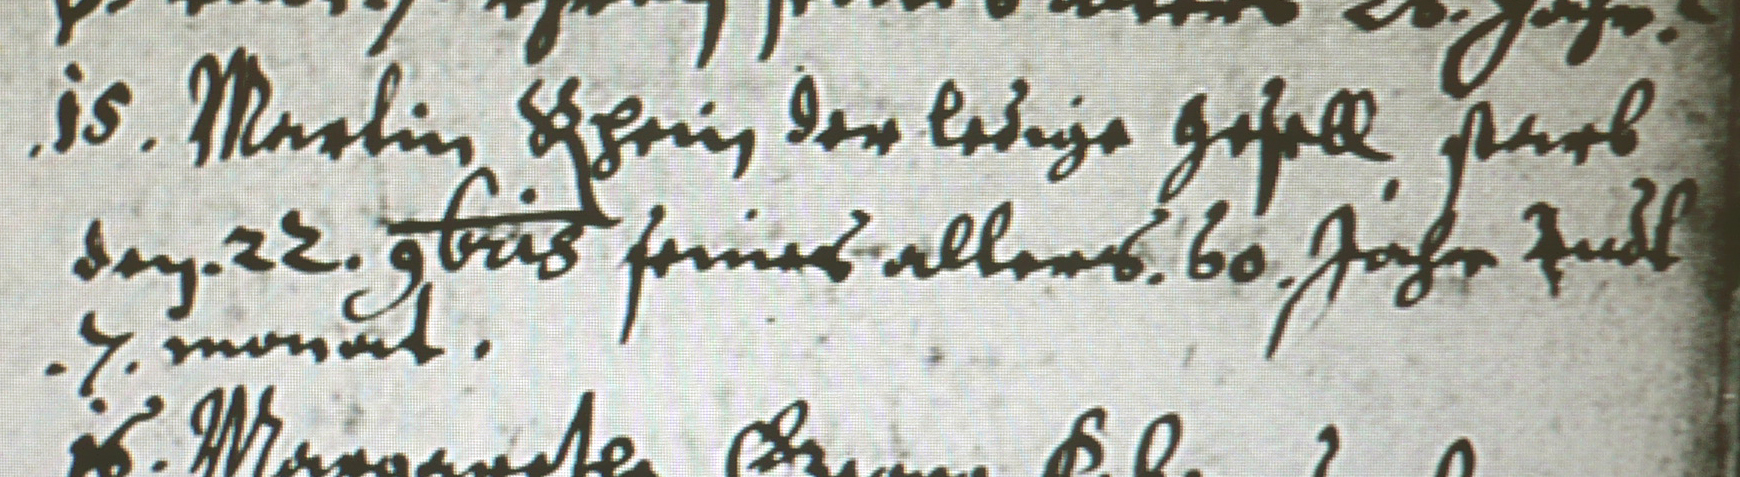 seines alters 26. Jahr.
.15. Martin Schein der ledige gesell starb
den. 22. 9bris seines alters. 60. Jahr undt
.7. monat.
16. Margaretha